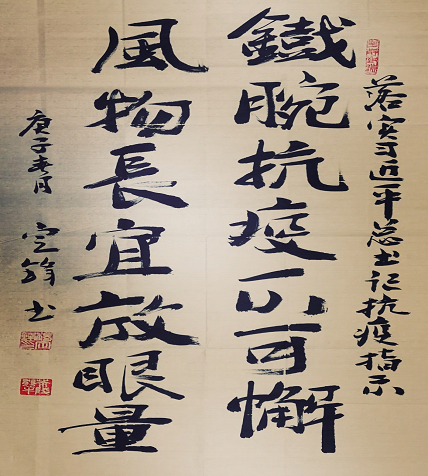 落实习近平总书记抗疫指示
鐵腕抗疫不可懈
風物長宜放眼量
庚子春月
空锋书